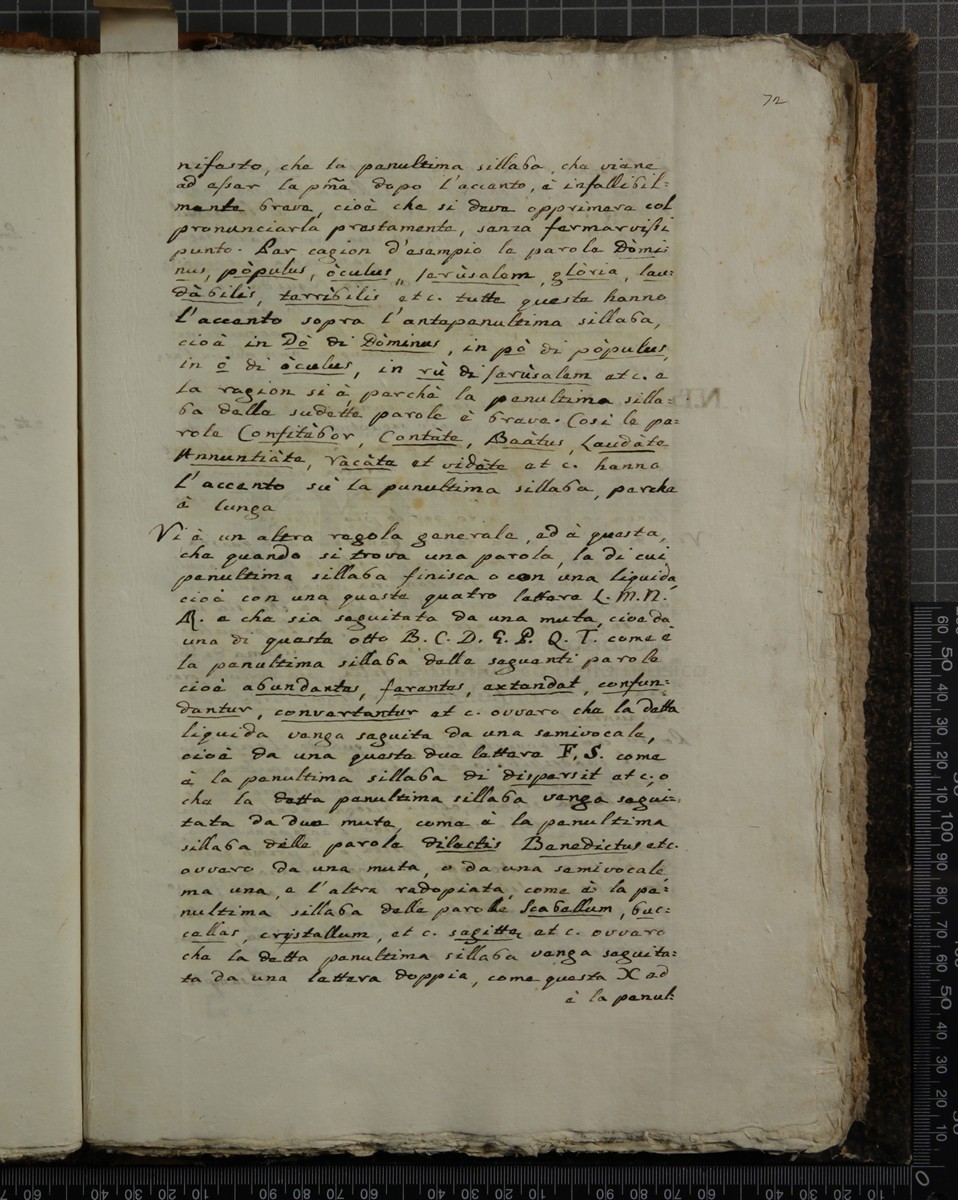 72
nifesto, che la penultima sillaba, che viene
ad esser la pm̃a dopo l'accento, è infallibil=
mente breve, cioè che si deve opprimere col
pronunciarla prestamente, senza fermarvisi
punto. Per cagion d'esempio le parole Dòmi
nus, pòpulus, òculus, Jerùsalem, glòria, lau=
dàbilis, terrìbilis etc. tutte queste hanno
l'accento sopra l'antepenultima sillaba,
cioè in Dò di Dòminus, in pò di pòpulus,
in ò di òculus, in rù di Jerùsalem etc. e
la ragion si è, perchè la penultima silla=
ba delle sudette parole è breve. Così le pa=
role Confitèbor, Cantàte, Beàtus, Laudàte
Annuntiàte, Vacàte et vidète et c. hanno
l'accento sù la penultima sillaba, perche
è lunga
Vi è un altra regola generale, ed è questa,
che quando si trova una parola, la di cui
penultima sillaba finisca o con una liquida
cioè con una queste quatro lettere L. M. N.
R. e che sia seguitata da una muta, cioè da
una di queste otto B. C. D. G. P. Q. T. come è
la penultima sillaba delle seguenti parole
cioè abundantes, ferentes, extendet, confun=
dantur, convertantur et c. ovvero che la detta
liquida venga seguita da una semivocale,
cioè da una queste due lettere F, S. come
è la penultima sillaba di dispersit et c; o
che la detta penultima sillaba venga segui=
tata da due mute, come è la penultima
sillaba delle parole dilectis Benedictus etc.
ovvero da una muta, o da una semivocale
ma una, e l'altra radopiata, come è la pe=
nultima sillaba delle parole Scabellum, buc=
cellas, crystallum, et c. sagittæ et c. ovvero
che la detta penultima sillaba venga seguita=
ta da una lettera doppia, come questa X ad
è la penul: